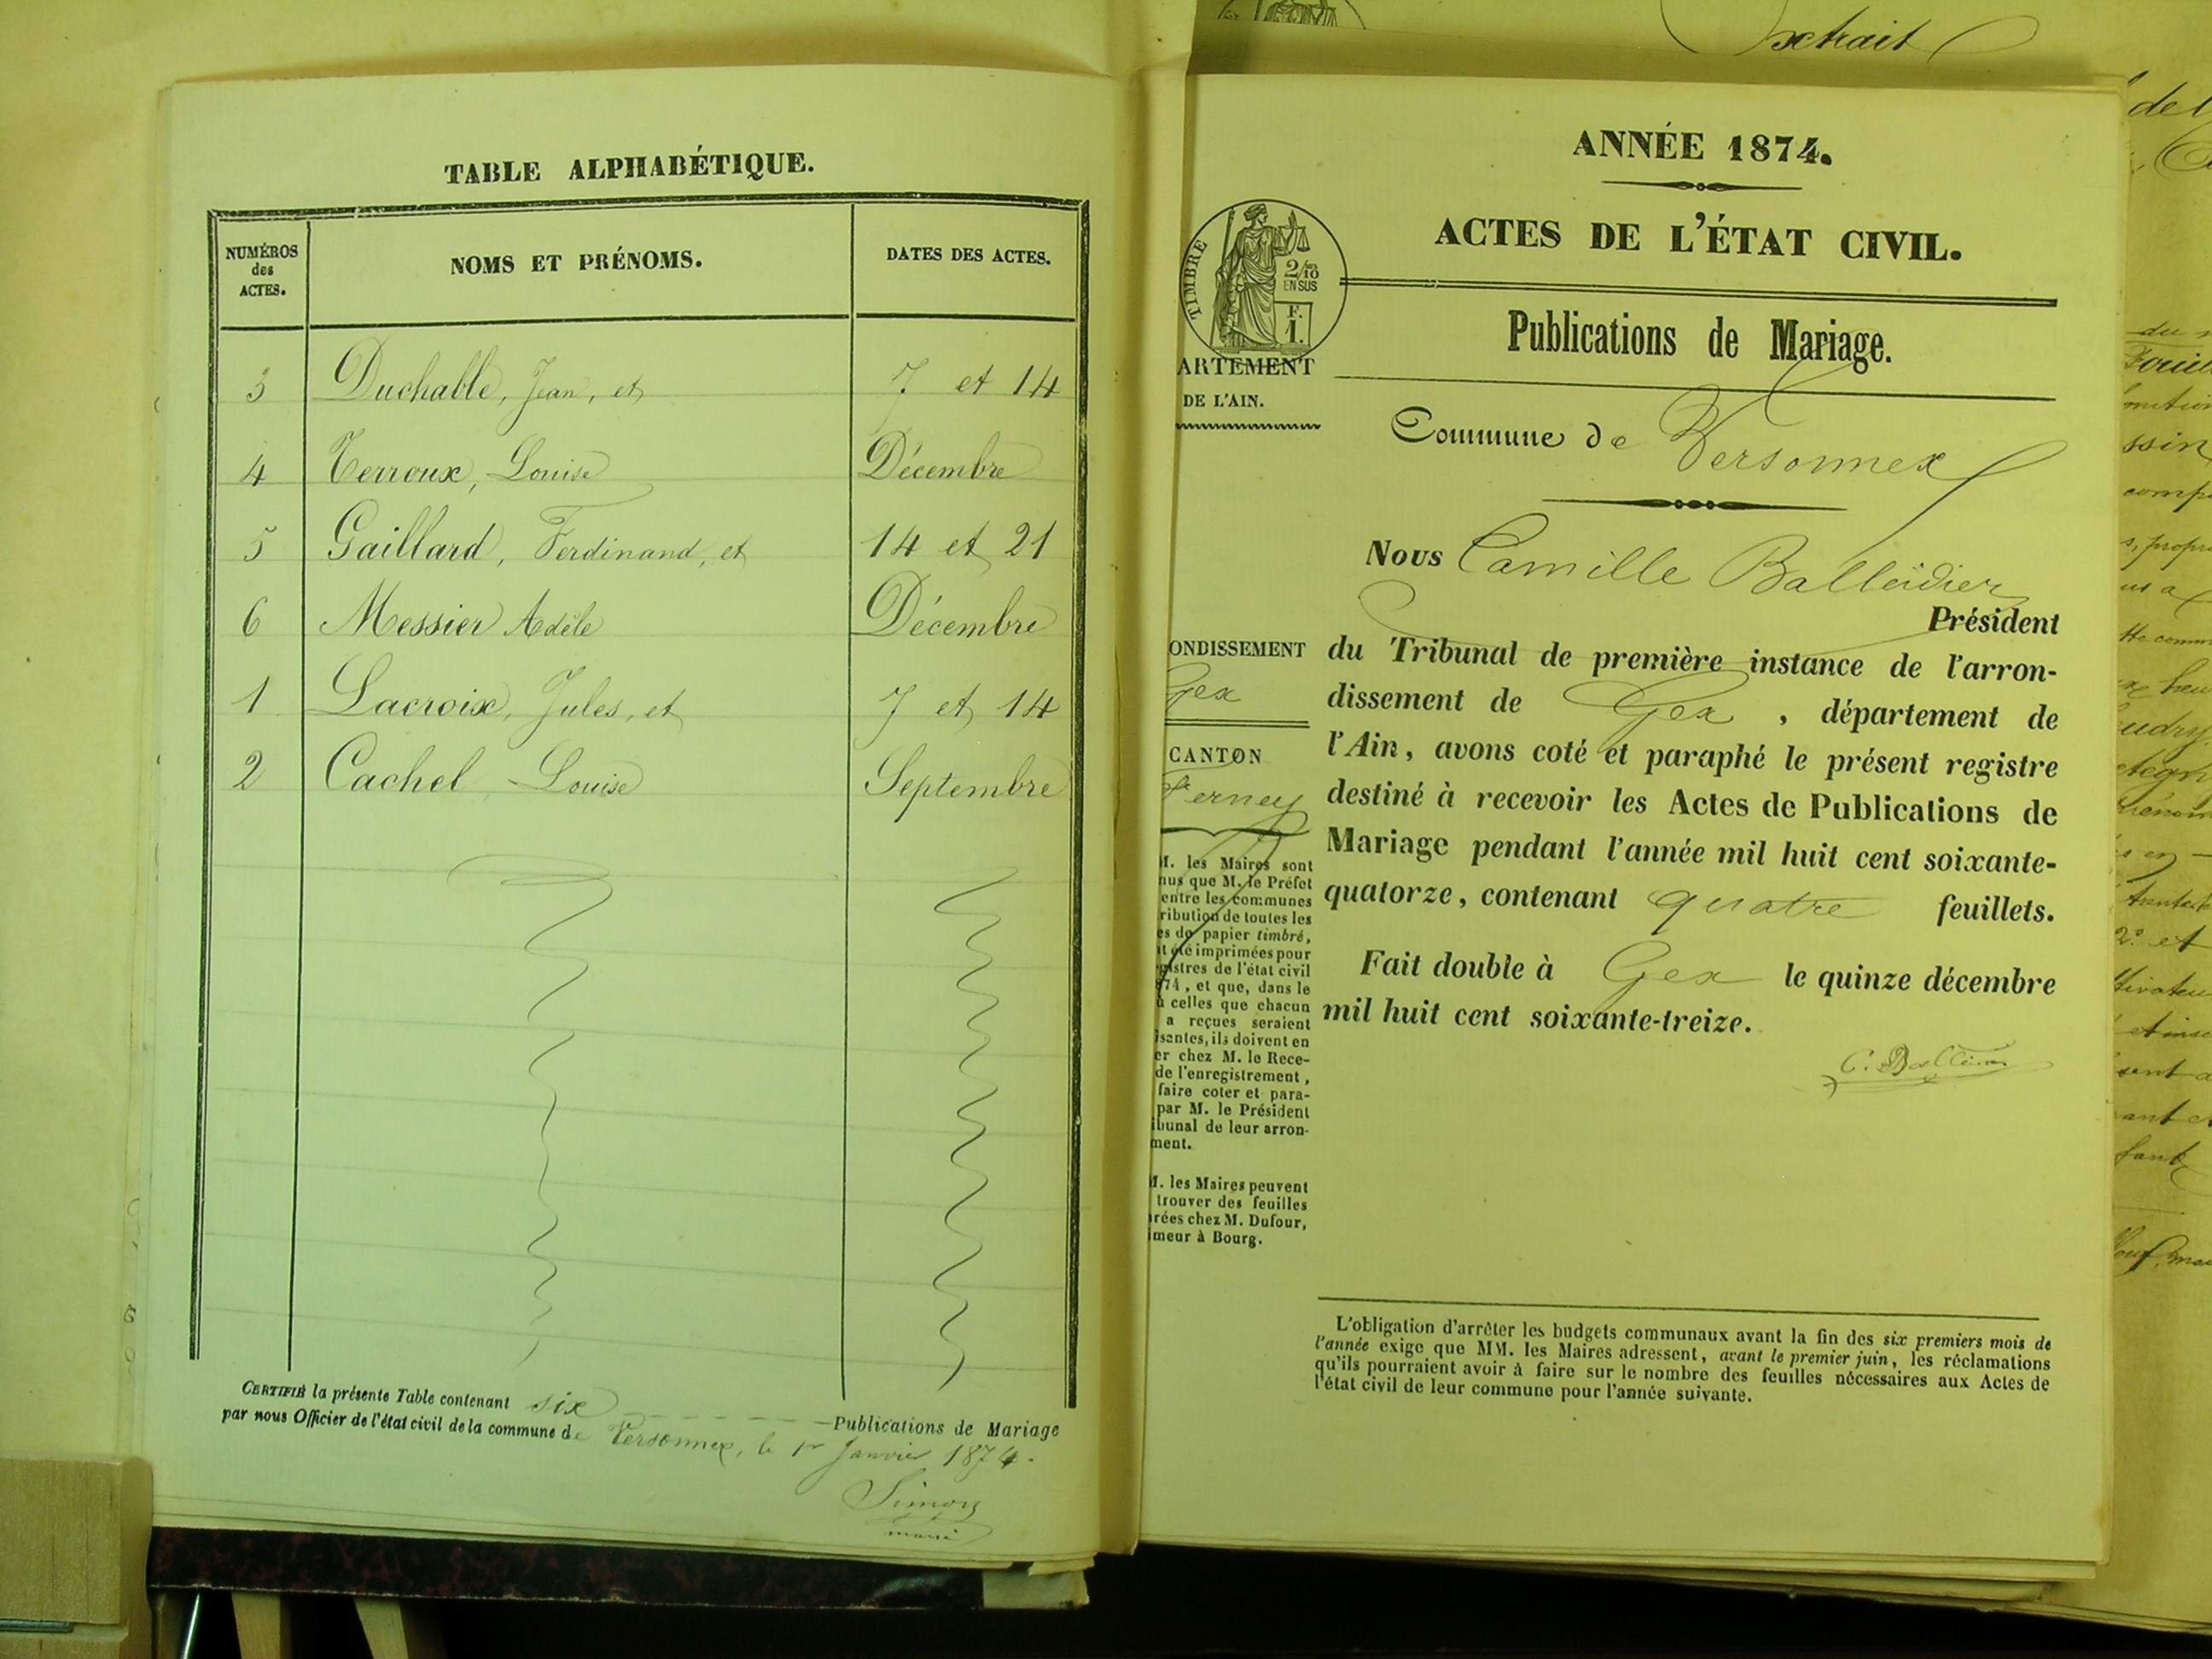 TABLE ALPHABÉTIQUE.
NUMÉROS
des
ACTES.
NOMS ET PRÉNOMS.
DATES DES ACTES.
3 Duchable, Jean, et 7 et 14
4 Terroux, Louise Décembre
5 Gaillard, Ferdinand, et 14 et 21
6 Messier Adèle Décembre
1 Lacroix, Jules, et 7 et 14
2 Cachel Louise Septembre
CERTIFIÉ la présente Table contenant six Publications de Mariage
par nous Officier de l'état civil de la commune de Versonnex, le 1er Janvier 1874.
Simon
maire
ANNÉE 1874.
ACTES DE L'ÉTAT CIVIL.
TIMBRE
2/10
EN SUS
F.
1.
ARTEMENT
DE L'AIN.
Publications de Mariage.
Commune de Versonnex
Nous Camille Balleidier
Président
du Tribunal de première instance de l'arron-
dissement de Gex, département de
l'Ain, avons coté et paraphé le présent registre
destiné à recevoir les Actes de Publications de
Mariage pendant l'année mil huit cent soixante-
quatorze, contenant quatre feuillets.
Fait double à Gex le quinze décembre
mil huit cent soixante-treize.
ONDISSEMENT
Gex
CANTON
Ferney
M. les Maires sont
nus que M. le Préfet
entre les communes
ribution de toutes les
es de papier timbré,
nt été imprimées pour
gistres de l'état civil
874, et que, dans le
ù celles que chacun
a reçues seraient
isantes, ils doivent en
er chez M. le Rece-
de l'enregistrement,
faire coter et para-
par M. le Président
ibunal de leur arron-
ment.
M. les Maires peuvent
trouver des feuilles
rées chez M. Dufour,
imeur à Bourg.
L'obligation d'arrêter les budgets communaux avant la fin des six premiers mois de
l'année exige que MM. les Maires adressent, avant le premier juin, les réclamations
qu'ils pourraient avoir à faire sur le nombre des feuilles nécessaires aux Actes de
l'état civil de leur commune pour l'année suivante.